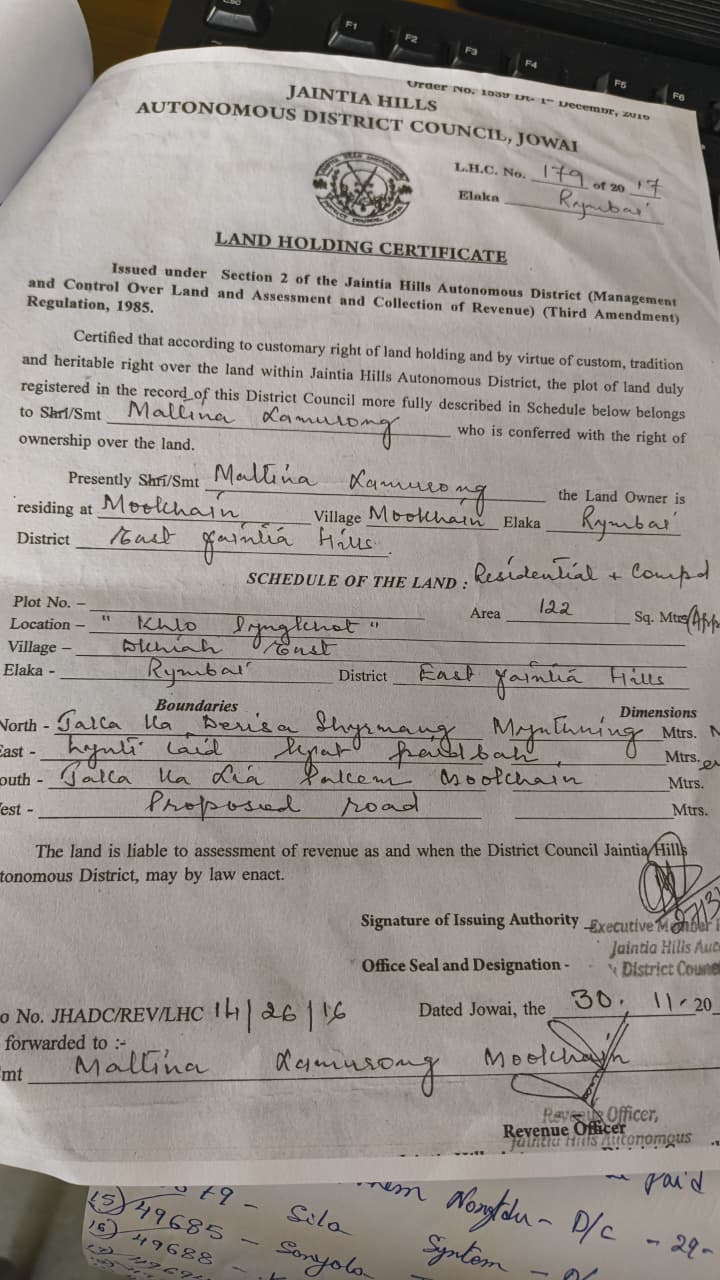 Order No. 1539 Dt. 1st Decembr, 2016
JAINTIA HILLS
AUTONOMOUS DISTRICT COUNCIL, JOWAI
L.H.C. No. 179 of 20 17
Elaka Rymbai
LAND HOLDING CERTIFICATE
Issued under Section 2 of the Jaintia Hills Autonomous District (Management
and Control Over Land and Assessment and Collection of Revenue) (Third Amendment)
Regulation, 1985.
Certified that according to customary right of land holding and by virtue of custom, tradition
and heritable right over the land within Jaintia Hills Autonomous District, the plot of land duly
registered in the record of this District Council more fully described in Schedule below belongs
to Shri/Smt Maltina Lamurong who is conferred with the right of
ownership over the land.
Presently Shri/Smt Maltina Lamurong the Land Owner is
residing at Moolchain Village Moolchain Elaka Rymbai
District East Jaintia Hills.
SCHEDULE OF THE LAND : Residential + Compd
Plot No. –
Location – " Khlo "
Area 122 Sq. Mtrs (App
Village – East
Elaka - Rymbai District East Jaintia Hills
Boundaries Dimensions
North - Jaka Ka Derisa Shyrmang Mynthning Mtrs.
East - Mtrs.
outh - Jaka Ka Lia Moolchain Mtrs.
est - Proposed road Mtrs.
The land is liable to assessment of revenue as and when the District Council Jaintia Hills
tonomous District, may by law enact.
Signature of Issuing Authority - Executive Member
Jaintia Hills Aut
Office Seal and Designation - District Counc
o No. JHADC/REV/LHC 14/26/16 Dated Jowai, the 30. 11. 20
forwarded to :-
mt Maltina Lamurong Moolchain
Revenue Officer,
Revenue Officer
Jaintia Hills Autonomous
79 - Nongtdu - D/c - 29 -
paid
15) 49685 - Sila Syntem -
16) 49688 - Sonyola